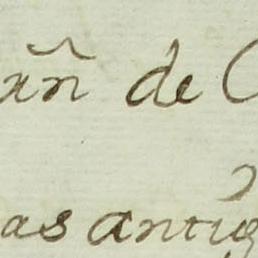 añ de C
as antig